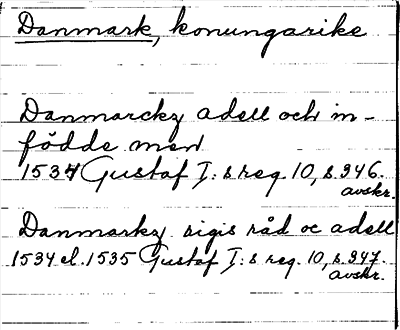 Danmark, konungarike
Danmarcky adell och in-
födde men
1534 Gustaf I:s reg. 10, s. 346.
avskr.
Danmarky rigis råd oc adell
1534 el. 1535 Gustaf I:s reg. 10, s. 347.
avskr.